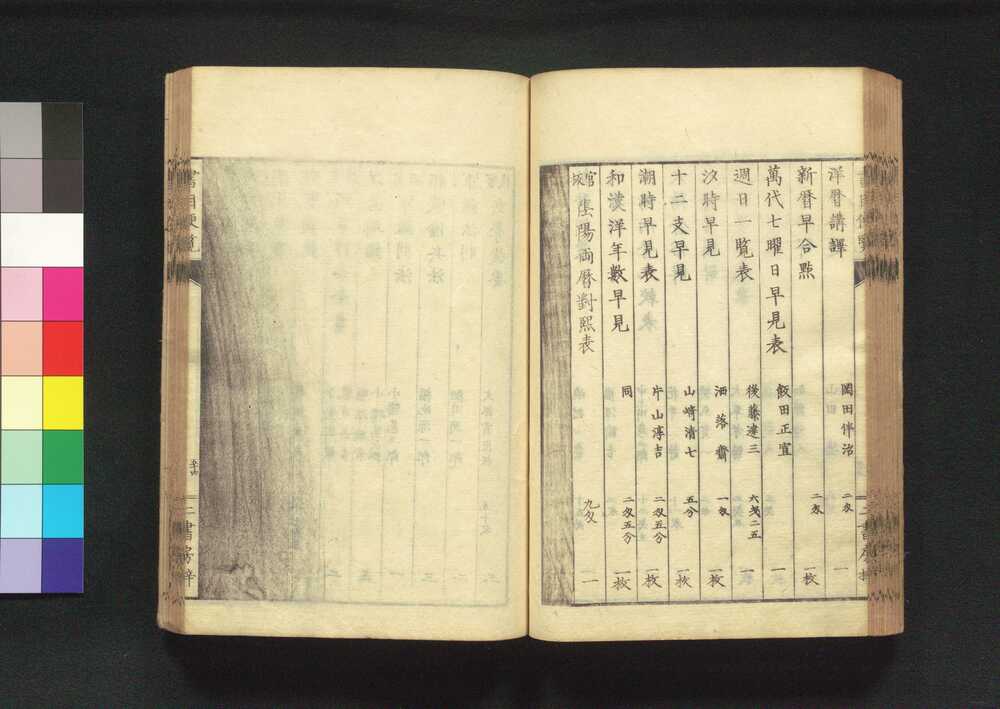 洋暦講譯 岡田伴治 二匁 一
新暦早合點 二匁 一枚
萬代七曜日早見表 飯田正宜 一
週日一覧表 後藤達三 六戔二五 一
汐時早見 洒落齋 一匁 一枚
十二支早見 山﨑清七 五分 一枚
潮時早見表 片山淳吉 二匁五分 一枚
和漢洋年數早見 同 二匁五分 一枚
官版 陰陽両暦對照表 九匁 一
書目便覧 二書房梓